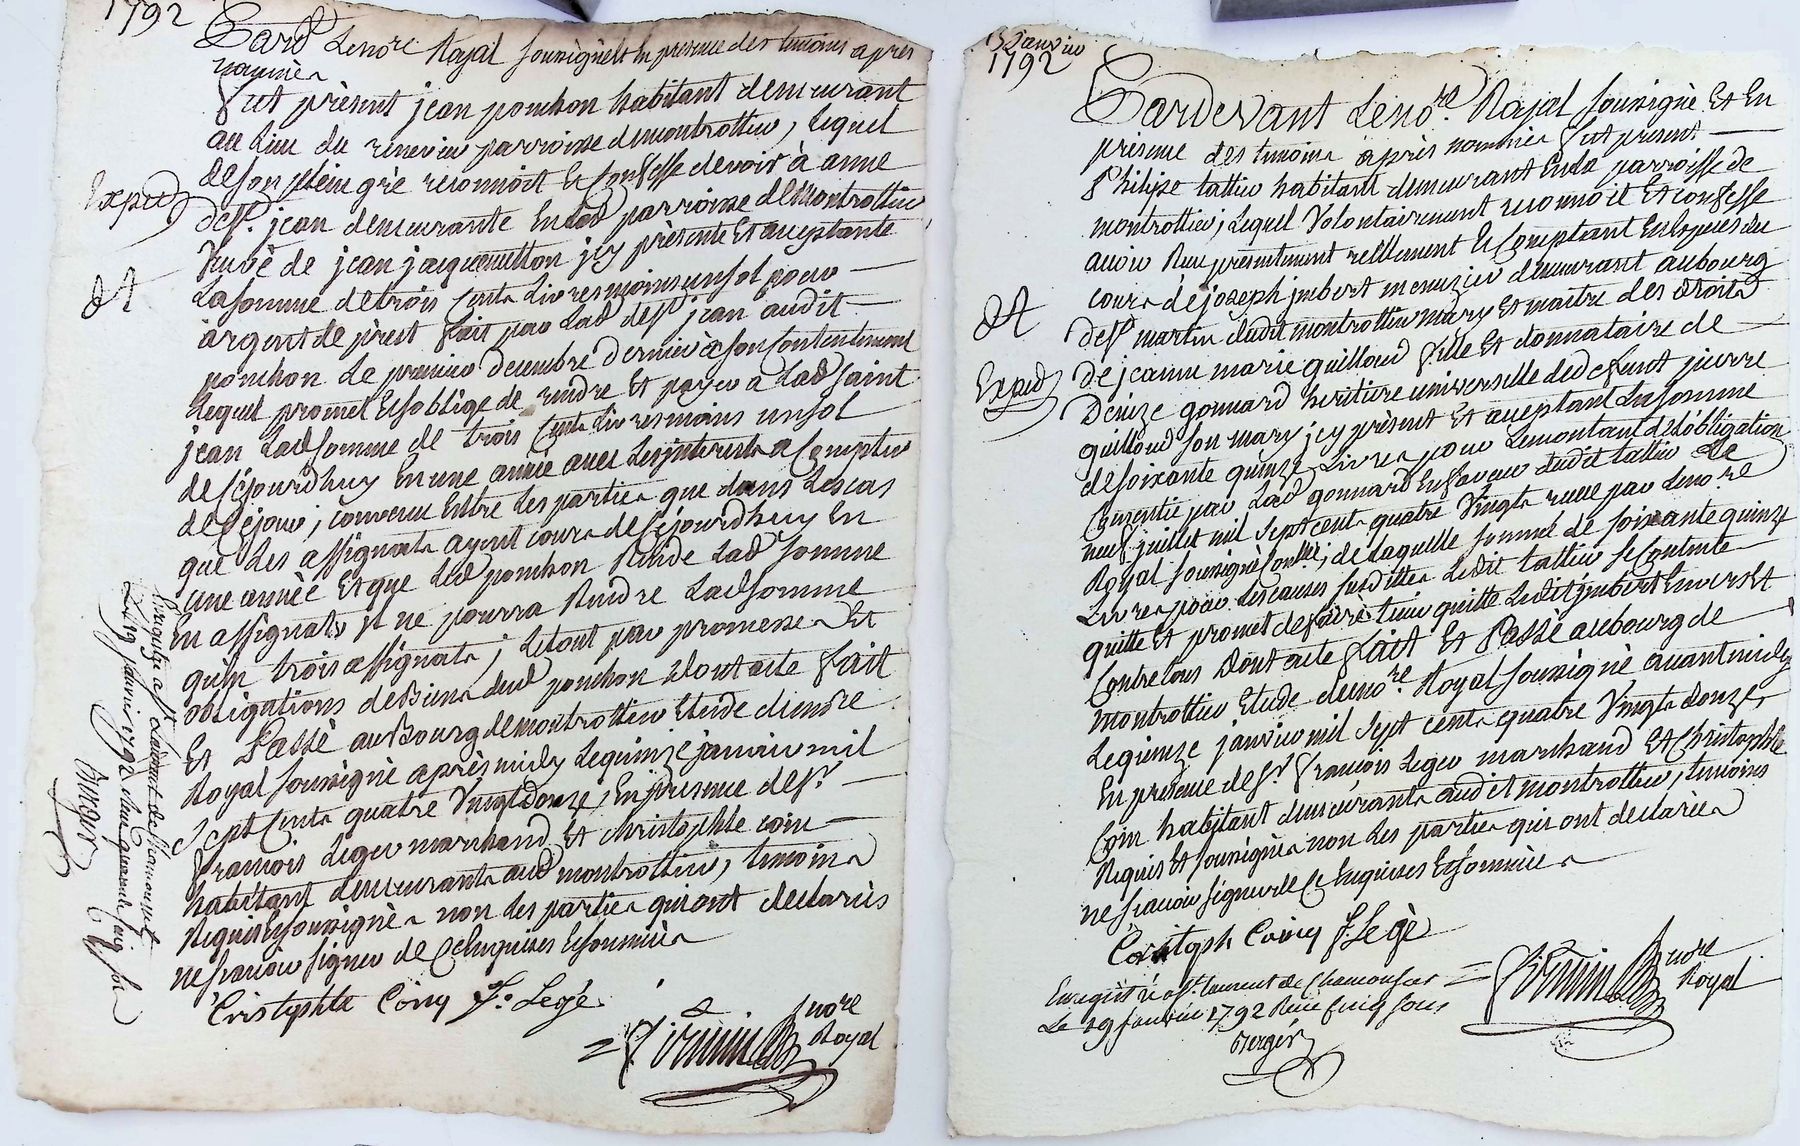 1792
Pard. Le no.re Royal soussigné et en presence des temoins apres
nommés
fut présent jean ponchon habitant demeurant
au lieu du parroisse de montrottier, lequel
de son plein gré reconnoit et confesse devoir à anne
Exped
de s.t jean demeurante en lad parroisse de montrottier
veuve de jean jacquemetton jcy présente et acceptante
la somme de trois cents livres moins un sol pour
argent de prest fait par lad de s.t jean audit
ponchon le premier decembre dernier à son contentement
lequel promet et s'oblige de rendre et payer a lad saint
jean lad somme de trois cents livres moins un sol
de cejourdhuy en une année avec les jnterests a compter
de cejour; convenu entre les parties que dans les cas
que les assignats ayent cours de cejourdhuy en
une année et que led ponchon rende lad somme
en assignats il ne pourra rendre lad somme
qu'en trois assignats; le tout par promesses et
obligations de biens dud ponchon dont acte fait
et Passé au Bourg de montrottier étude du no.re
Royal soussigné après midy le quinze janvier mil
sept cents quatre vingt douze, en presence de s.r
françois leger marchand et christophle coin
habitant demeurants aud montrottier, temoins
requis et soussignés non les parties qui ont declarés
ne sçavoir signer de ce enquises et sommées
Cristophle Coing f. Legé
no.re
Royal
Enregistré a st Laurent de Chamousset
le 19 janvier 1792 Reçu quarante cinq sols
Berger
15 Janvier
1792
Pardevant Le no.re Royal soussigné et en
présence des temoins après nommés fut présent
Philipe tattier habitant demeurant en la parroisse de
montrottier; lequel volontairement reconnoit et confesse
avoir reçu présentement réellement et comptant en especes du
cours de joseph jmbert menuzier demeurant au bourg
de s.t martin dudit montrottier mary et maitre des droits
Exped
de jeanne marie guilloud fille et donnataire de
Denize gonnard héritiere universelle de defunt pierre
guilloud son mary jcy présent et acceptant la somme
de soixante quinze livres pour le montant de l'obligation
consentie par lad gonnard en faveur dudit tattier le
neuf juillet mil sept cents quatre vingts reçue par le no.re
Royal soussigné; de laquelle somme de soixante quinze
livres pour les causes susdittes ledit tattier se contente
quitte et promet de faire tenir quitte ledit jmbert envers et
contre tous dont acte fait et Passé au bourg de
montrottier Etude du no.re Royal soussigné avant midy
le quinze janvier mil sept cents quatre vingts douze,
En presence de s.r françois Leger marchand et Christophle
Coin habitant demeurants audit montrottier, temoins
requis et soussignés non les parties qui ont declarées
ne sçavoir signer de ce enquises et sommées
Cristoph Coing f. Legé
no.re
Royal
Enregistré a st. laurent de Chamousset
Le 19 janvier 1792 Reçu cinq sous
Berger